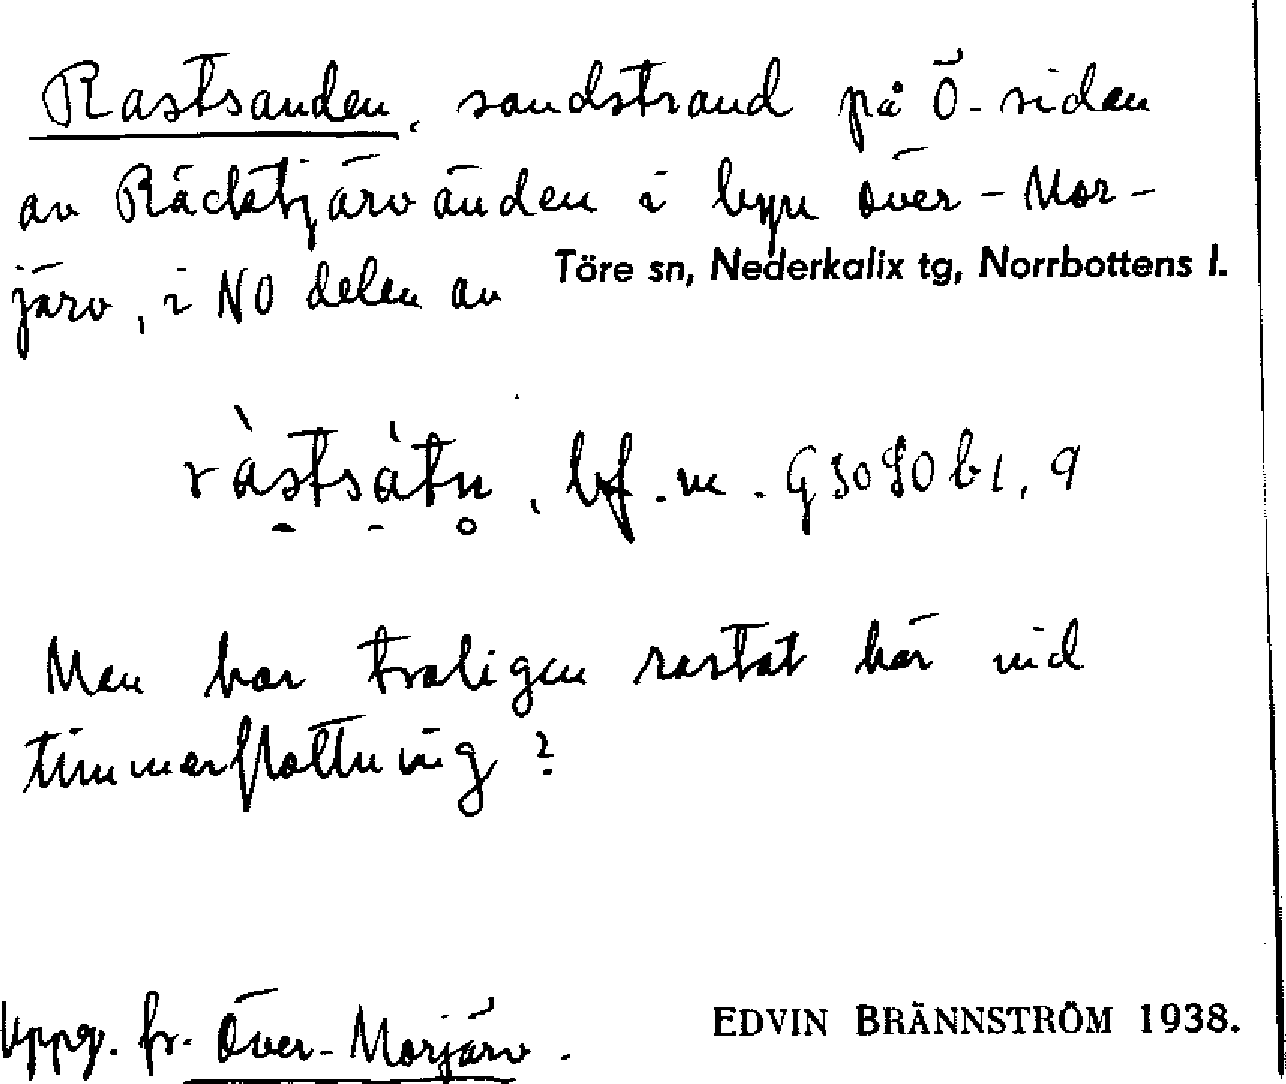 Rastsanden, sandstrand på Ö-sidan
av Räcktjärvänden i byn Över-Mor-
järv, i NO delen av Töre sn, Nederkalix tg, Norrbottens l.
bf. m. G3090b1, 9
Man har troligen rastat här vid
timmerflottning?
Uppg. fr. Över-Morjärv.
EDVIN BRÄNNSTRÖM 1938.